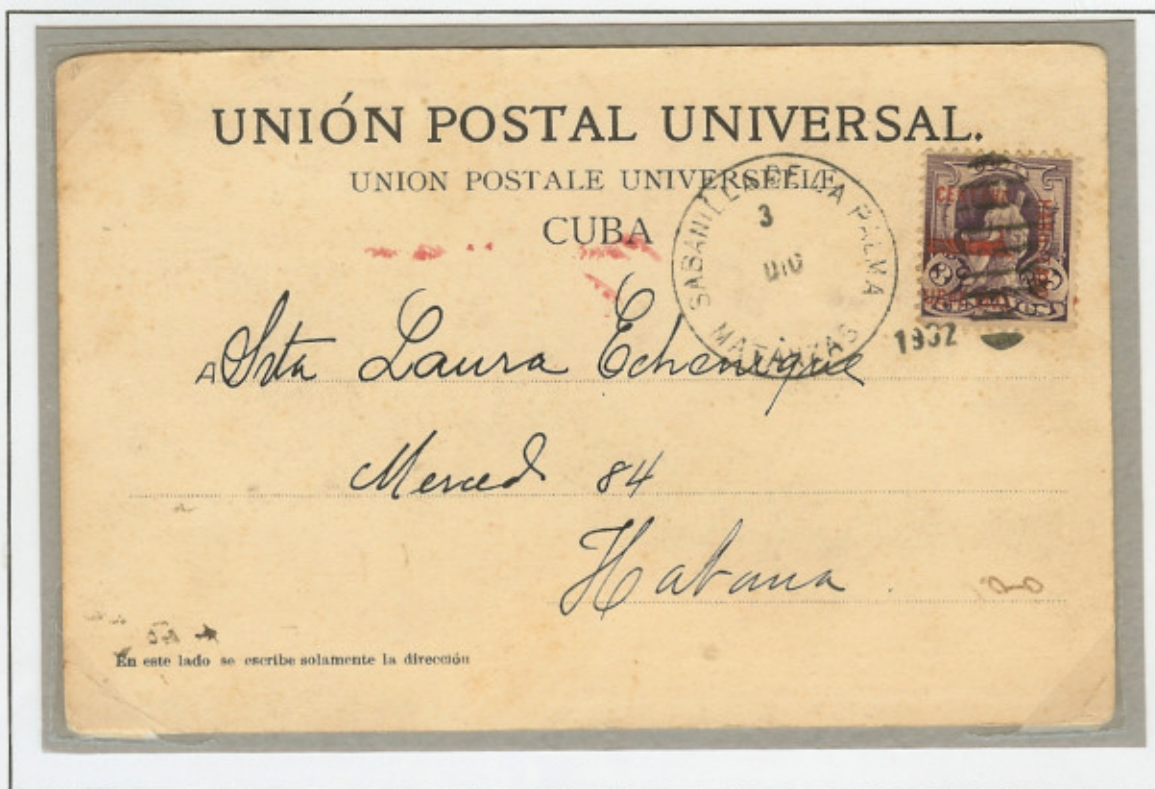 UNIÓN POSTAL UNIVERSAL.
UNION POSTALE UNIVERSELLE
CUBA
SABANILLA DE LA PALMA
3
DIC
MATANZAS
1902
CENTAVO
HABILITADO
UN
3 3
A Srta Laura Echenique
Merced 84
Habana
En este lado se escribe solamente la dirección